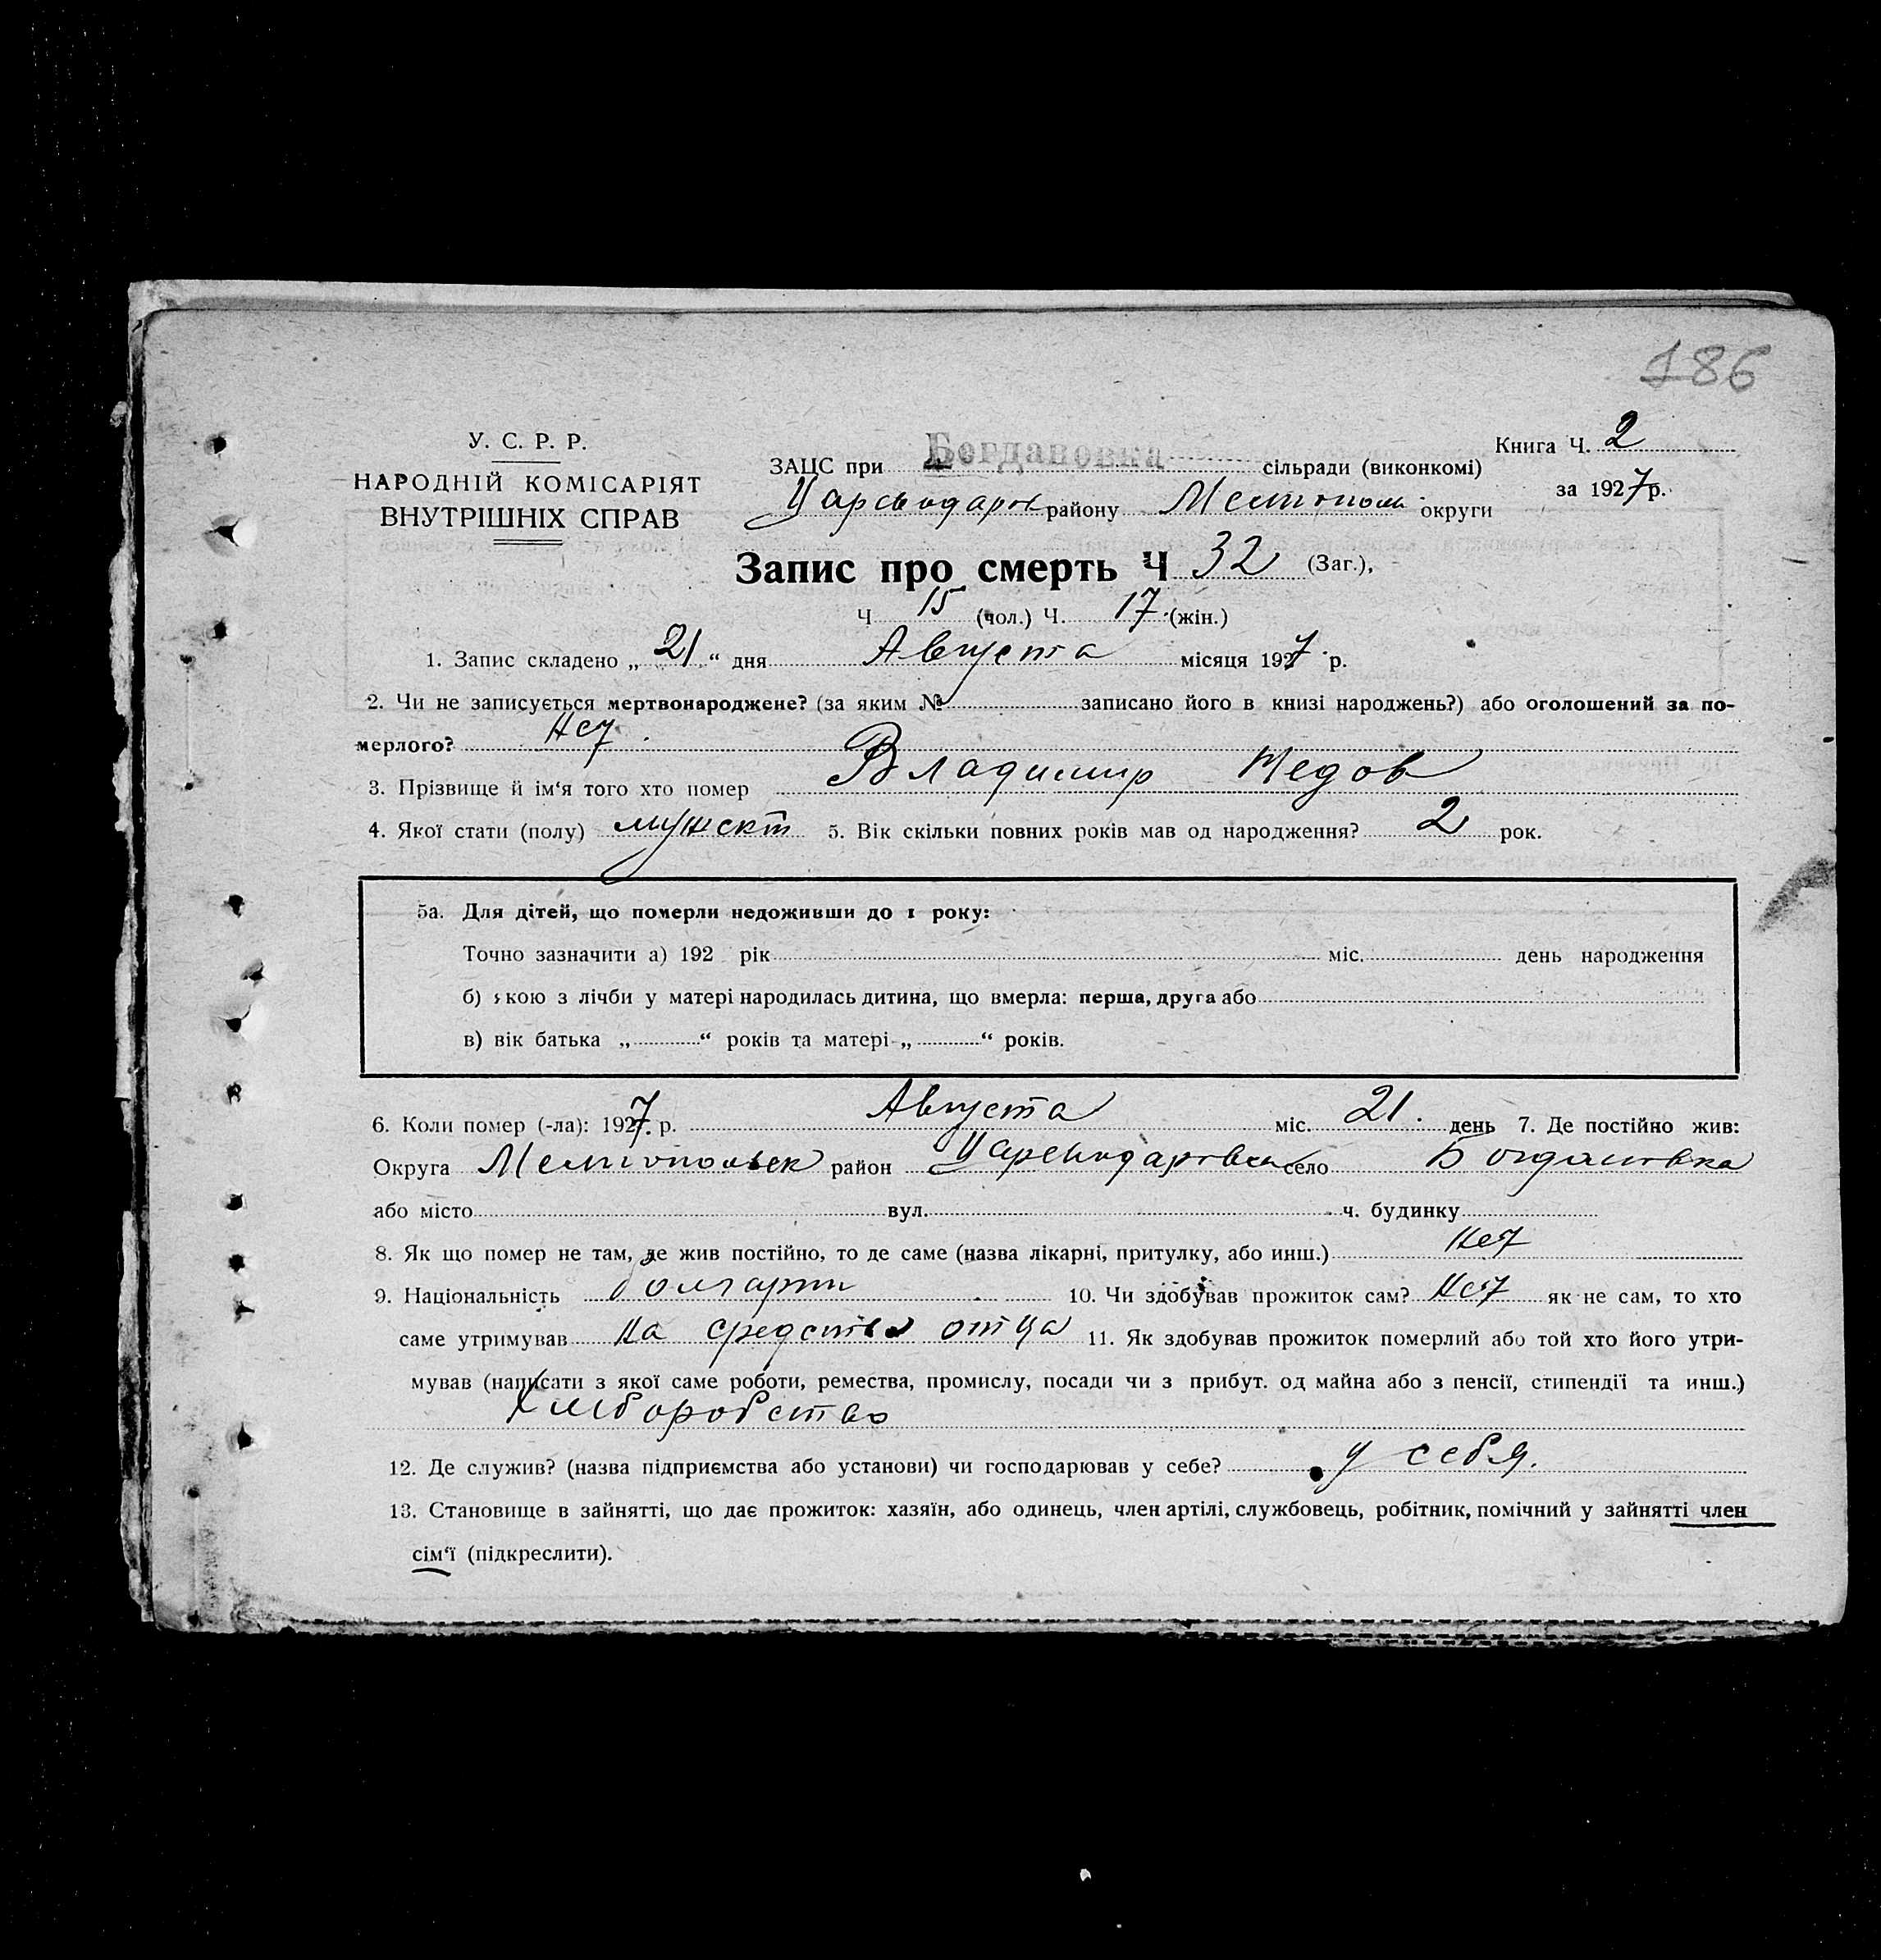 186
У. С. Р. Р.
НАРОДНІЙ КОМІСАРІЯТ
ВНУТРІШНІХ СПРАВ
ЗАЦС при Богдановка сільради (виконкомі)
району Мелитополь округи
Книга Ч. 2
за 1927 р.
Запис про смерть Ч 32 (Заг.),
Ч 15 (чол.) Ч. 17 (жін.)
1. Запис складено „ 21 “ дня Августа місяця 1927 р.
2. Чи не записується мертвонароджене? (за яким № записано його в книзі народжень?) або оголошений за по-
мерлого? Нет
3. Прізвище й ім‘я того хто помер Владимир Недов
4. Якої стати (полу) мужск 5. Вік скільки повних років мав од народження? 2 рок.
5а. Для дітей, що померли недоживши до 1 року:
Точно зазначити а) 192 рік міс. день народження
б) якою з лічби у матері народилась дитина, що вмерла: перша, друга або
в) вік батька „ “ років та матері „ “ років.
6. Коли помер (-ла): 1927. р. Августа міс. 21. день 7. Де постійно жив:
Округа Мелитопольск район село Богдановка
або місто вул. ч. будинку
8. Як що помер не там, де жив постійно, то де саме (назва лікарні, притулку, або инш.) Нет
9. Національність болгарин 10. Чи здобував прожиток сам? Нет як не сам, то хто
саме утримував На средства отца 11. Як здобував прожиток померлий або той хто його утри-
мував (написати з якої саме роботи, ремества, промислу, посади чи з прибут. од майна або з пенсії, стипендії та инш.)
Хлеборобство
12. Де служив? (назва підприємства або установи) чи господарював у себе? у себя.
13. Становище в зайнятті, що дає прожиток: хазяїн, або одинець, член артілі, службовець, робітник, помічний у зайнятті член
сім‘ї (підкреслити).